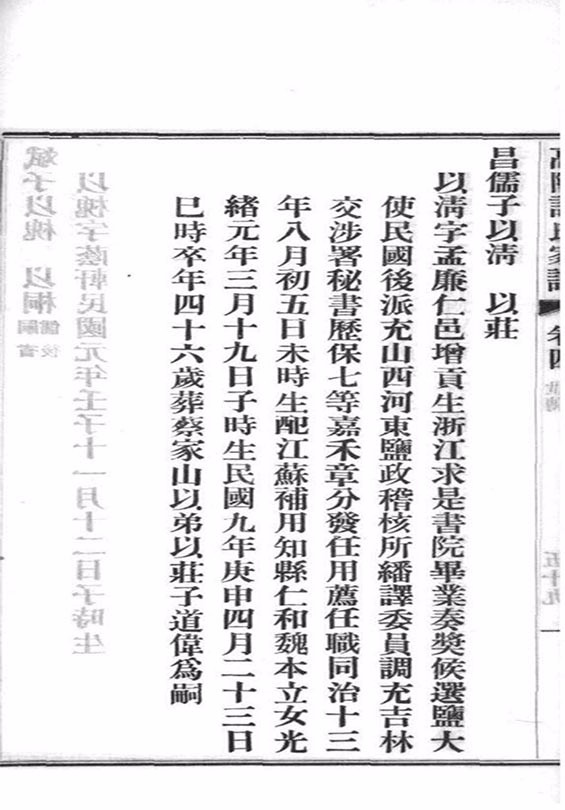 高陽許氏家譜 卷四 世傳 五十九
昌儒子以淸　以莊
以淸字孟廉仁邑增貢生浙江求是書院畢業奏奬候選鹽大
使民國後派充山西河東鹽政稽核所繙譯委員調充吉林
交涉署秘書歷保七等嘉禾章分發任用薦任職同治十三
年八月初五日未時生配江蘇補用知縣仁和魏本立女光
緒元年三月十九日子時生民國九年庚申四月二十三日
巳時卒年四十六歲葬蔡家山以弟以莊子道偉爲嗣
以槐字蔭軒民國元年壬子十一月十二日子時生
斌子以槐　以桐